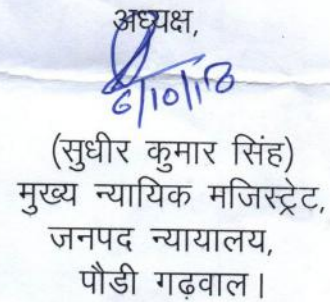 अध्यक्ष,
6/10/18
(सुधीर कुमार सिंह)
मुख्य न्यायिक मजिस्ट्रेट,
जनपद न्यायालय,
पौडी गढ़वाल।